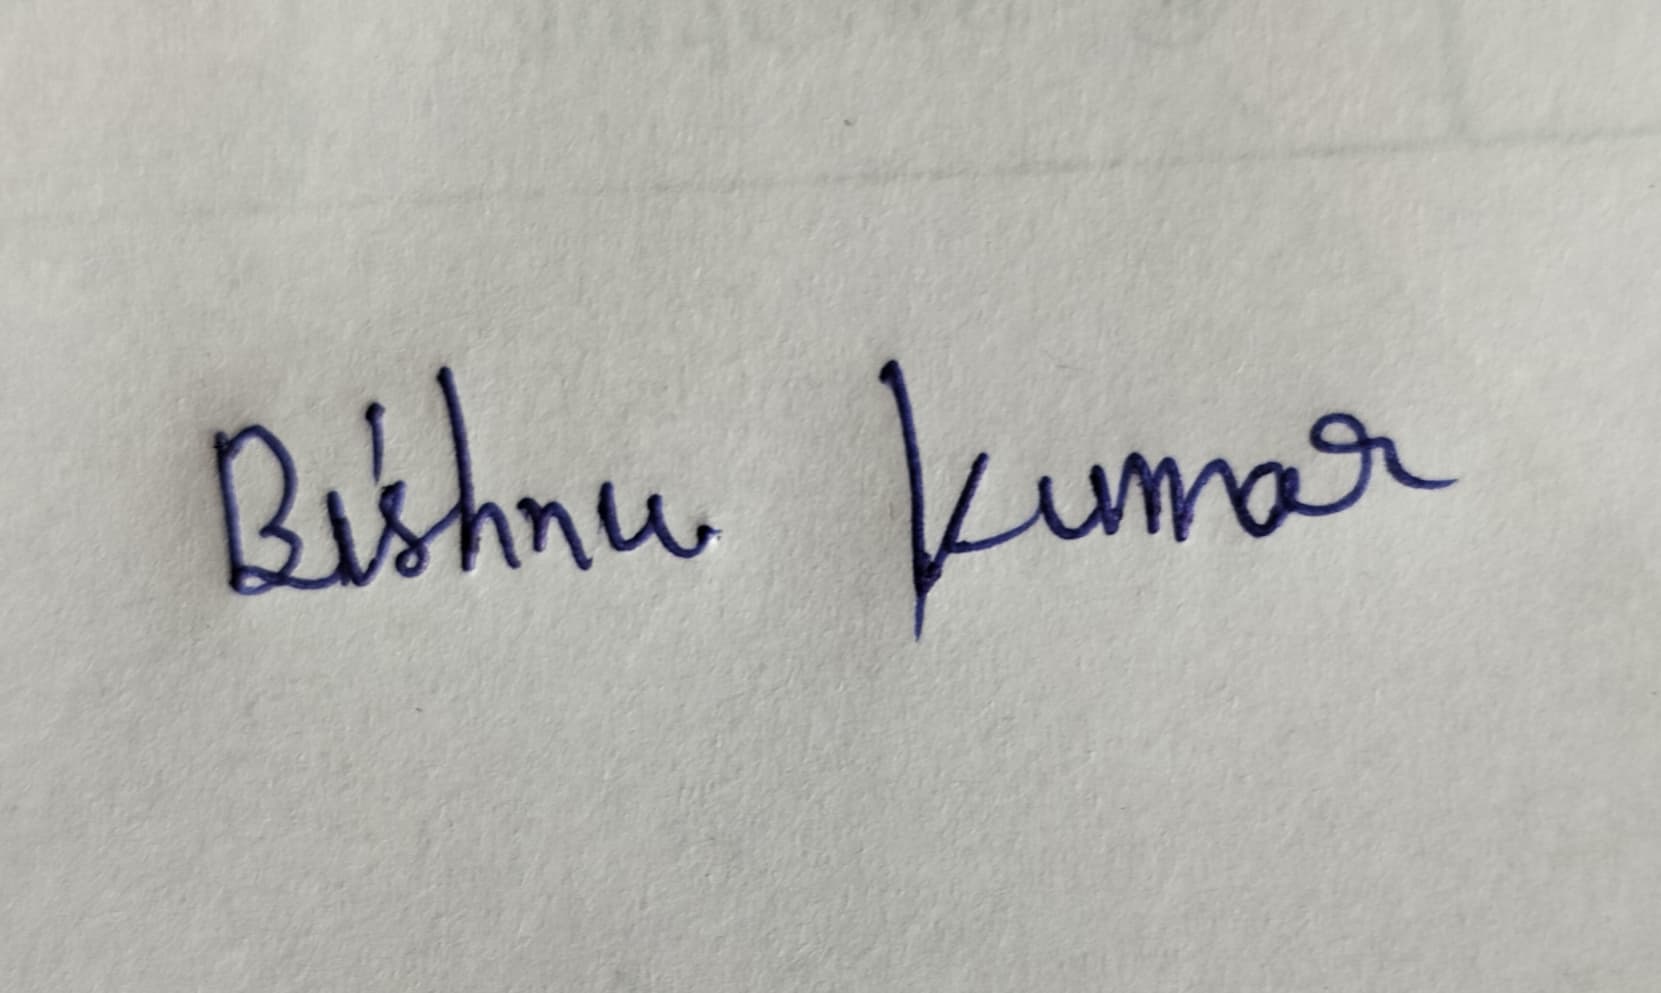 Bishnu Kumar